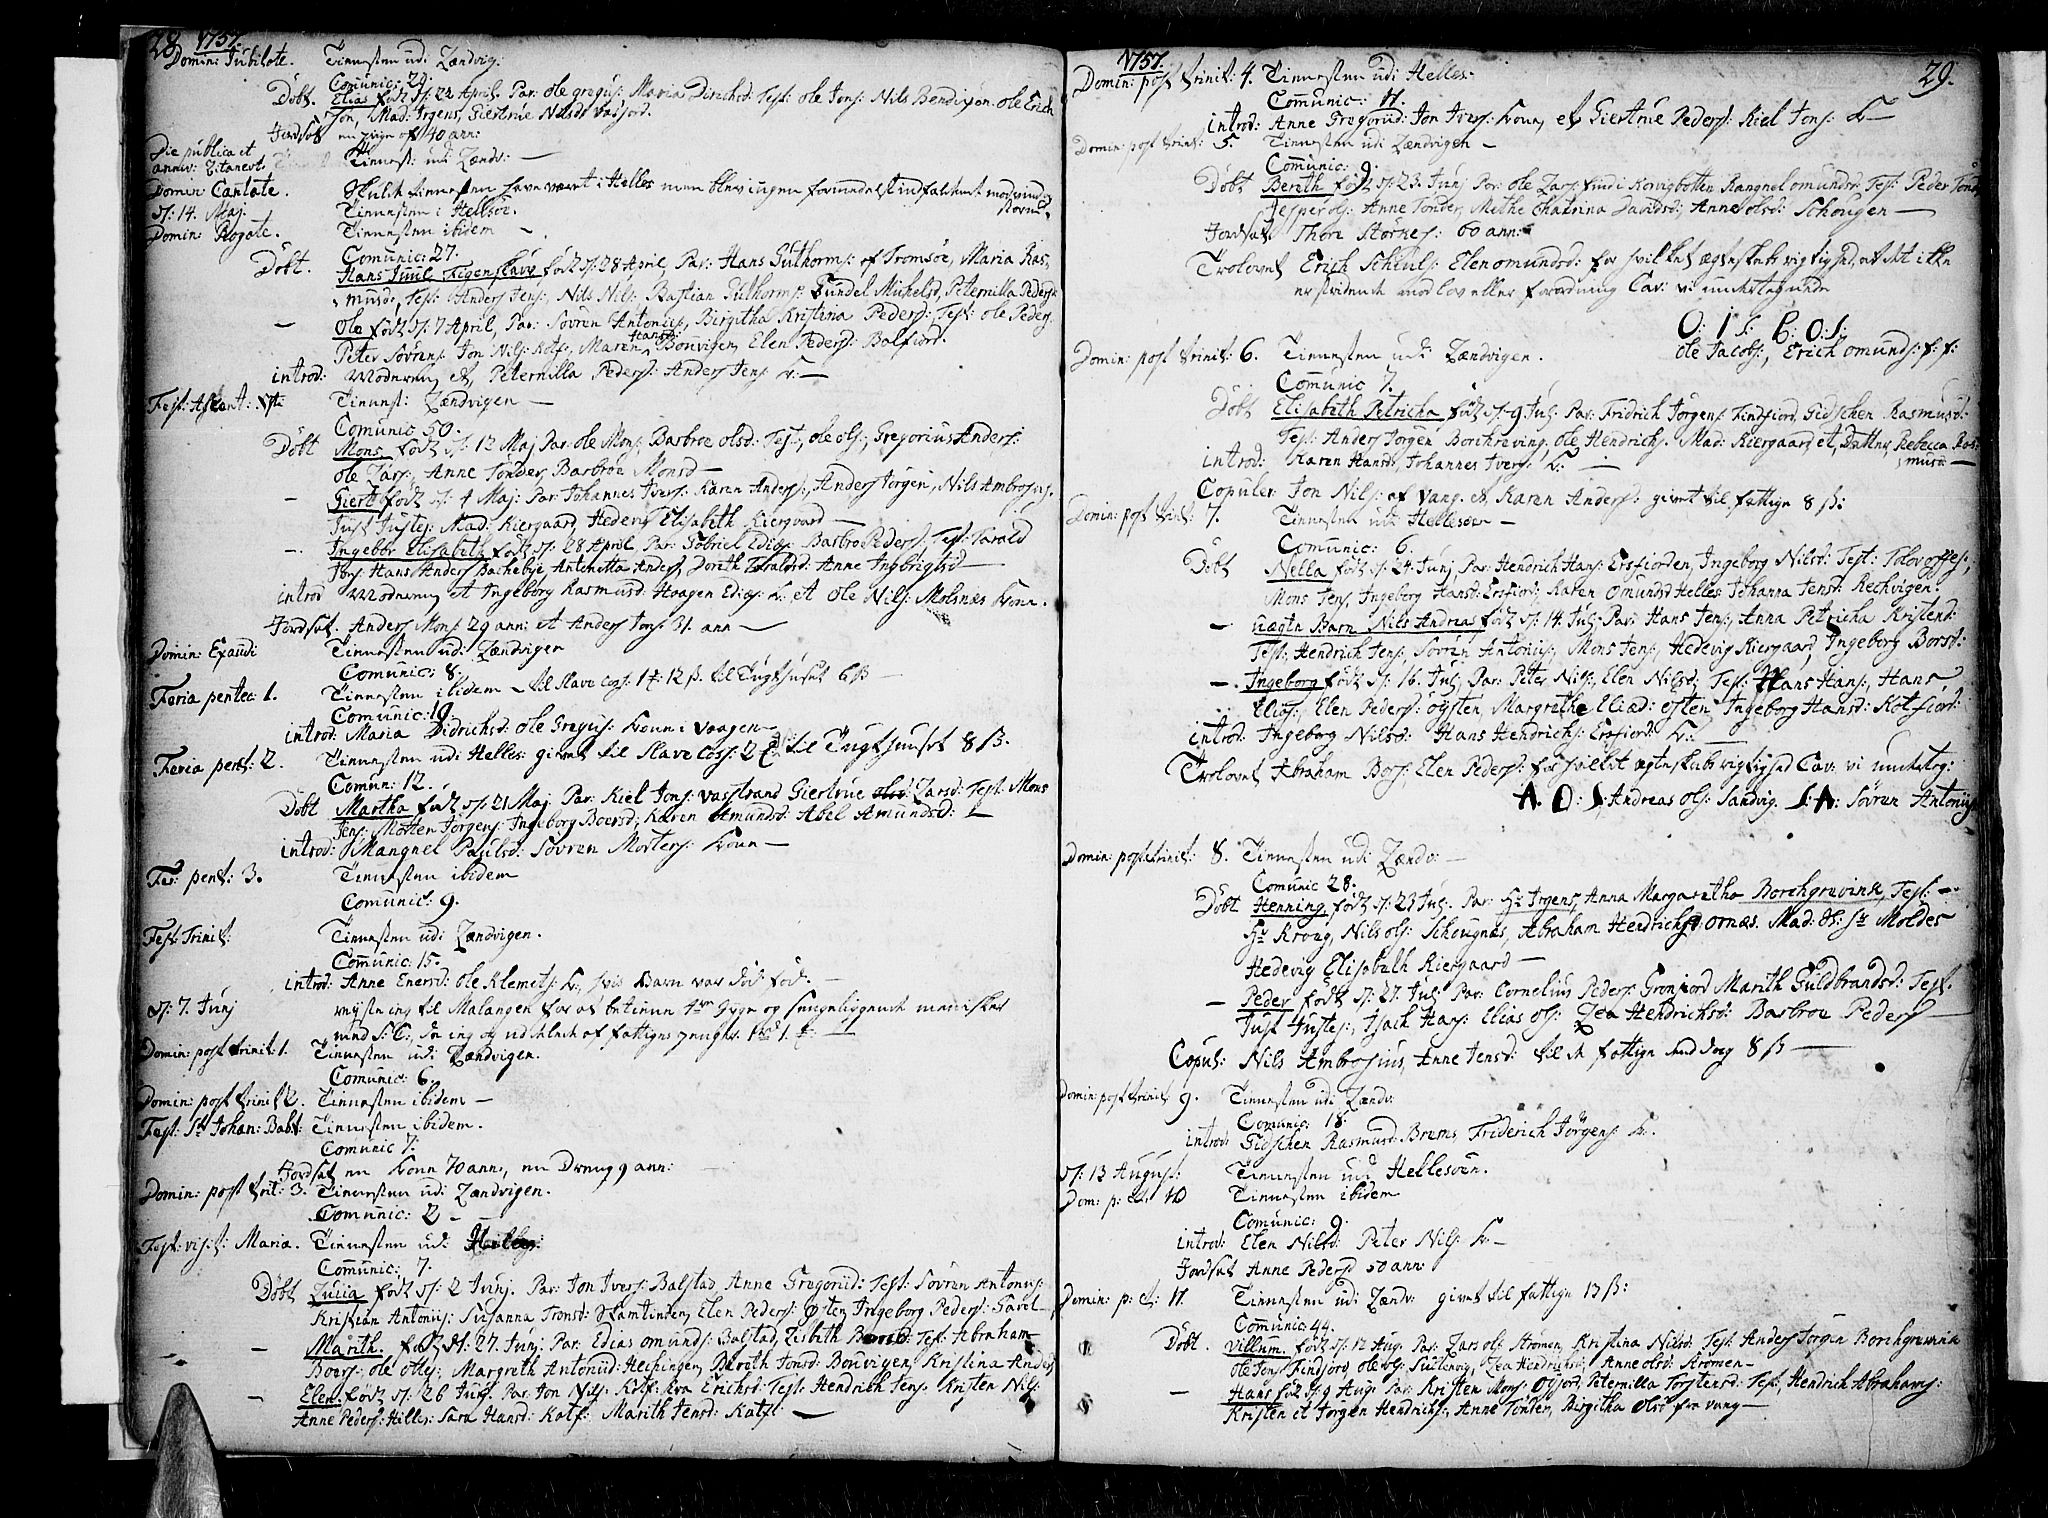 28. 1757.
Domin: Jubilate. Tienesten udi Zandvig:
Comunic: 29.
Döbt. Elias föd d: 22 April. Par: Ole Gregus: Maria Dirichsd: Test: Ole Jons: Nils Bendixøn. Ole Erich
søn, Mad: Irgens, Giertrue Nilsd:
Jordfæst en pige af 40 ann:
Die publica et
anniv: Litanevt. Tienest: udi Zandv:
Domin: Cantate. Skulde tienesten have været i Helles men blev ingen formedelst indfaldende modvind og
storm.
d: 14. Maj. Tienesten i Hellsöe.
Domin: Rogate. Tienesten ibidem
Comunic: 27.
Döbt. Hans Juul Figenskau föd d: 28 April, Par: Hans Guthorms: af Tromsöe, Maria Ras-
musd, Test: Anders Jens:, Nils Nils:, Bastian Guthorms: Gundel Michelsd, Peternilla Peders:
- Ole föd d: 7 April, Par: Sövren Antonius, Birgitha Kristina Peders: Test: Ole Peders:
Peter Sövrens: Jon Nils: Kotf:, Maren Hansd: Bonvigen, Elen Peders: Balfiord.
introd: Moderen et, Peternilla Peders: Anders Jens: K:
Fest: Ascent: Xsti Tienest: Zandvigen
Comunic 50.
Döbt Mons föd d: 12 Maj Par: Ole Mons: Barbroe Olsd: Test:, Ole Ols:, Gregorius Anders:
Ole Lars:, Anne Tönder, Barbroe Monsd
- Giert föd d: 4 Maj: Par: Johannes Ivers: Karen Anders:, Anders Jörgen, Nils Ambrosius,
Just Justes: Mad: Kiergaard, Hedevig Elisabeth Kiergaard
-. Ingebor Elisabeth föd d: 28 April Par: Gabriel Edis: Barbro Peders: Test: Harald
Hans Anders Bachebye Antonetta Anders, Dorith Haralds: Anne Ingbrigtsd
introd Moderen et Ingeborg Rasmusd: Haagen Edis: K: et Ole Nils: Malsnæs Kone.
Jordfæst. Anders Mons 29 ann: et Anders Jons 31. ann
Domin: Exaudi Tienesten udi Zandvigen
Comunic: 8.
Feria pentec: 1. Tienesten ibidem til slave cass: 12 ß. til Tugthuset 6 ß
Comunic: 19
introd: Maria Didrichsd: Ole Gregus: Kone i Vaagen
Feria pent: 2. Tienesten udi Helles: givet til slave Cass: til Tugthuuset 8 ß.
Comun: 12.
Döbt Martha föd d: 21 Maj Par: Kiel Jons: Vasstrand Giertrue Larsd: Test: Mons
Jens: Morten Jörgens: Ingeborg Boersd: Karen Amundsd: Abel Amundsd:
introd: Mangnel Paulsd: Sövren Mortens: Kone
Fer: pent: 3. Tienesten ibidem
Comunic: 9.
Fest: Trinit: Tienesten udi Zandvigen.
Comunic: 15.
introd: Anne Enersd: Ole Klemets: K:, hvis Barn var död föd.
d: 7. Junj reyste ieg til Malangen for at betiene
Domin: post trinit: 1. Tienesten udi Zandvigen.
Comunic: 6.
Domin: post trinit 2. Tienesten ibidem
Fest: St Johan: Babt: Tienesten ibidem.
Comunic 7.
Jordfæst en Kone 70 ann:, en Dreng 9 ann:
Domin: post trit: 3. Tienesten udi Zandvigen.
Comunic: 2
Fest: visit: Mariæ. Tienesten udi Helles:
Comunic: 7.
Döbt Lucia föd d: 2 Junj. Par: Jon Ivers: Balstad, Anne Gregorid: Test: Sövren Antonius:
Kristian Antonius: Susanna Tronsd: Skamtinden, Elen Peders: Østen, Ingeborg Peders:
- Marith. föd d: 27. Junj: Par: Edias Omunds: Balstad, Lisbeth Test: Abraham
Boers: Ole Ottes: Margreth Antonid: Hessingen, Bereth Jonsd: Bonvigen, Kristina Anders
- Elen föd d: 26 Par: Jon Nils: Kotf: Eva Erichsd: Test: Hendrich Jens: Kristen Nils:
Anne Peders: Helles: Sara Hansd: Kotf: Marith Jensd: Kotf:
1757. 29.
Domin: post trinit: 4. Tienesten udi Helles:
Comunic: 11.
introd: Anne Gregorud: Jon Ivers: Kone, et Giertrue Peders: Kiel Jons: K
Domin: post trinit: 5. Tienesten udi Zandvigen
Comunic: 9.
Döbt Bereth föd d: 23. Junj Par: Ole Lars: find i Kovigbotten Rangnel Omunds: Test: Peder Tönder
Jesper Ols: Anne Tönder, Mette Chatrina Davidsd: Anne Olsd: Schougen
Jordfæst: Thore Stornes: 60 ann:
Trolovet Erich Schiels: Elen Omundsd: for hvilket ægteskabs rigtighed, at det ikke
er stridende mod lov eller forordning Cav: vi undertegnede
O: I S: E: O: S:
Ole Jacobs:, Erich Omunds: f: f:
Domin: post trinit: 6. Tienesten udi Zandvigen.
Comunic 7.
Döbt Elisabeth Petricha föd d: 9 Jul: Par: Fridrich Jörgens: Findfiord, Gidschen Rasmusd:
Test: Anders Jörgen Borchreving, Ole Hendrichs. Mad: Kiergaard et, Datter, Rebecca Ras-
musd
introd: Karen Hansd: Johannes Ivers: K:
Copuler. Jon Nils: af Vang. et Karen Anders: givet til fattige 8 ß:
Domin: post trinit: 7. Tienesten udi Hellesöen
Comunic: 6.
Döbt Nella föd d: 24. Junj, Par: Hendrich Hans: Ersfiorden, Ingeborg Nilsd: Test:
Mons Jens, Ingeborg Hansd: Ersfiord, Karen Omundsd Helles: Johanna Jensd: Rechvigen.
- Uægte Barn Nils Andreas föd d: 14. Jul: Par: Hans Jens: Anna Petricha Kristensd:
Test:, Hendrich Jens:, Sövren Antonius:, Mons Jens:, Hedevig Kiergaard, Ingeborg Borsd:
-. Ingeborg föd d: 16. Jul: Par: Peter Nils:, Elen Nilsd: Test: Hans Hans:, Hans
Elias:, Elen Peders: Öysten, Margrethe Eliæd: Östen Ingeborg Hansd: Kotfiord:
introd: Ingeborg Nilsd: Hans Hendrichs: Ersfiord: K:
Trolovet Abraham Bors: Elen Peders: for hvilket ægteskabs rigtighed Cav: vi underteg:
A. O: S: Andreas Ols: Sandvig. S: A: Sövren Antonius
Domin: post trinit: 8. Tienesten udi Zandv:
Comunic 28.
Döbt Henning föd d: 23 Jul: Par: Hr Irgens, Anna Margaretha Borchgrevink, Test:
Hr Kroug, Nils Ols: Schougnæs, Abraham Hendrichs: Ornæs. Mad: Sr Moldes
Hedevig Elisabeth Kiergaard
- Peder föd d: 27. Jul: Par: Cornelius Peders: Gronfiord Marith Guldbrandsd: Test.
Just Justes:, Isach Hans: Elias Ols: Lea Hendrichsd: Barbroe Peders
Copul: Nils Ambrosius, Anne Jensd: til de fattige 8 ß
Domin: post trinit 9. Tienesten udi Zandv:
Comunic: 18.
introd: Gidschen Rasmusd: Brems, Friderich Jörgens: K:
d: 13 August: Tienesten udi Hellesöen.
Dom: p: t: 10 Tienesten ibidem
Comunic: 9.
introd: Elen Nilsd: Peter Nils: K:
Jordfæst Anne Pedersd 50 ann:
Domin: p: t: 11. Tienesten udi Zandv: givet til fattige 13 ß:
Comunic: 44.
Döbt. Villum. föd d: 12 Aug: Par: Lars Ols: Strömen, Kristina Nilsd: Test: Anders Jörgen Borchgrevink
Ole Jons: Findfiord, Ole Ols: Lea Hendrichsd: Anne Olsd: Strömen
- Hans föd d: 9 Aug: Par: Kristen Mons: Peternilla Torstensd: Test:, Hendrich Abrahams:
Kristen et Jörgen Hendrichs:, Anne Tönder, Birgitha Olsd fra Vang